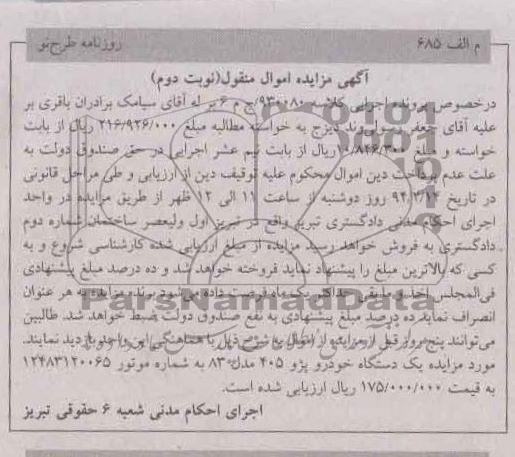 م الف ۶۸۵
روزنامه طرح نو
آگهی مزایده اموال منقول(نوبت دوم)
درخصوص پرونده اجرایی کلاسه ۹۳۰۰۸۰/ج م ۶ بر له آقای سیامک برادران باقری بر
علیه آقای جعفر رسول وند دیزج به خواسته مطالبه مبلغ ۲۱۶/۹۲۶/۰۰۰ ریال از بابت
خواسته و مبلغ ۱۰/۸۴۶/۳۰۰ ریال از بابت نیم عشر اجرایی در حق صندوق دولت به
علت عدم پرداخت دین اموال محکوم علیه توقیف دین از ارزیابی و طی مراحل قانونی
در تاریخ ۹۴/۳/۱۴ روز دوشنبه از ساعت ۱۱ الی ۱۲ ظهر از طریق مزایده در واحد
اجرای احکام مدنی دادگستری تبریز واقع در تبریز اول ولیعصر ساختمان شماره دوم
دادگستری به فروش خواهد رسید مزایده از مبلغ ارزیابی شده کارشناسی شروع و به
کسی که بالاترین مبلغ را پیشنهاد نماید فروخته خواهد شد و ده درصد مبلغ پیشنهادی
فی‌المجلس اخذ و مابقی حداکثر یک ماه فرصت داده می‌شود برنده مزایده به هر عنوان
انصراف نماید ده درصد مبلغ پیشنهادی به نفع صندوق دولت ضبط خواهد شد. طالبین
می‌توانند پنج روز قبل از مزایده از اموال به شرح ذیل با هماهنگی این واحد بازدید نمایند.
مورد مزایده یک دستگاه خودرو پژو ۴۰۵ مدل ۸۳ به شماره موتور ۱۲۴۸۳۱۲۰۰۶۵
به قیمت ۱۷۵/۰۰۰/۰۰۰ ریال ارزیابی شده است.
اجرای احکام مدنی شعبه ۶ حقوقی تبریز
ParsNamadData